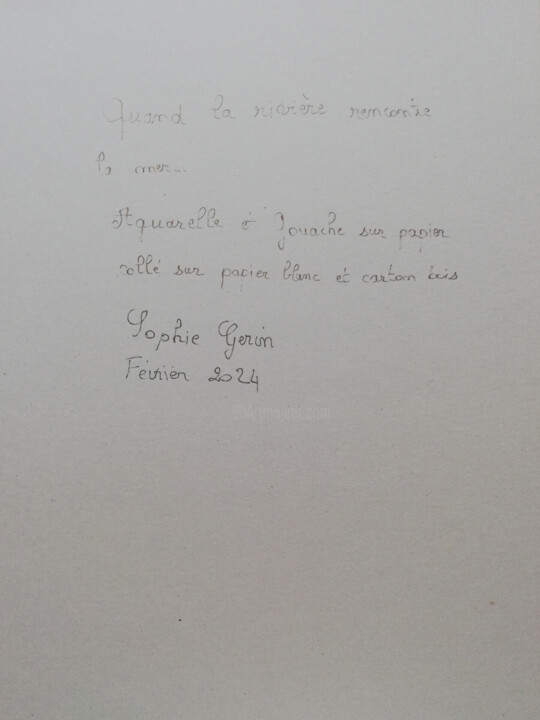 Quand la rivière rencontre
la mer...
Aquarelle & gouache sur papier
collé sur papier blanc et carton bois
Sophie Gerin
Février 2024